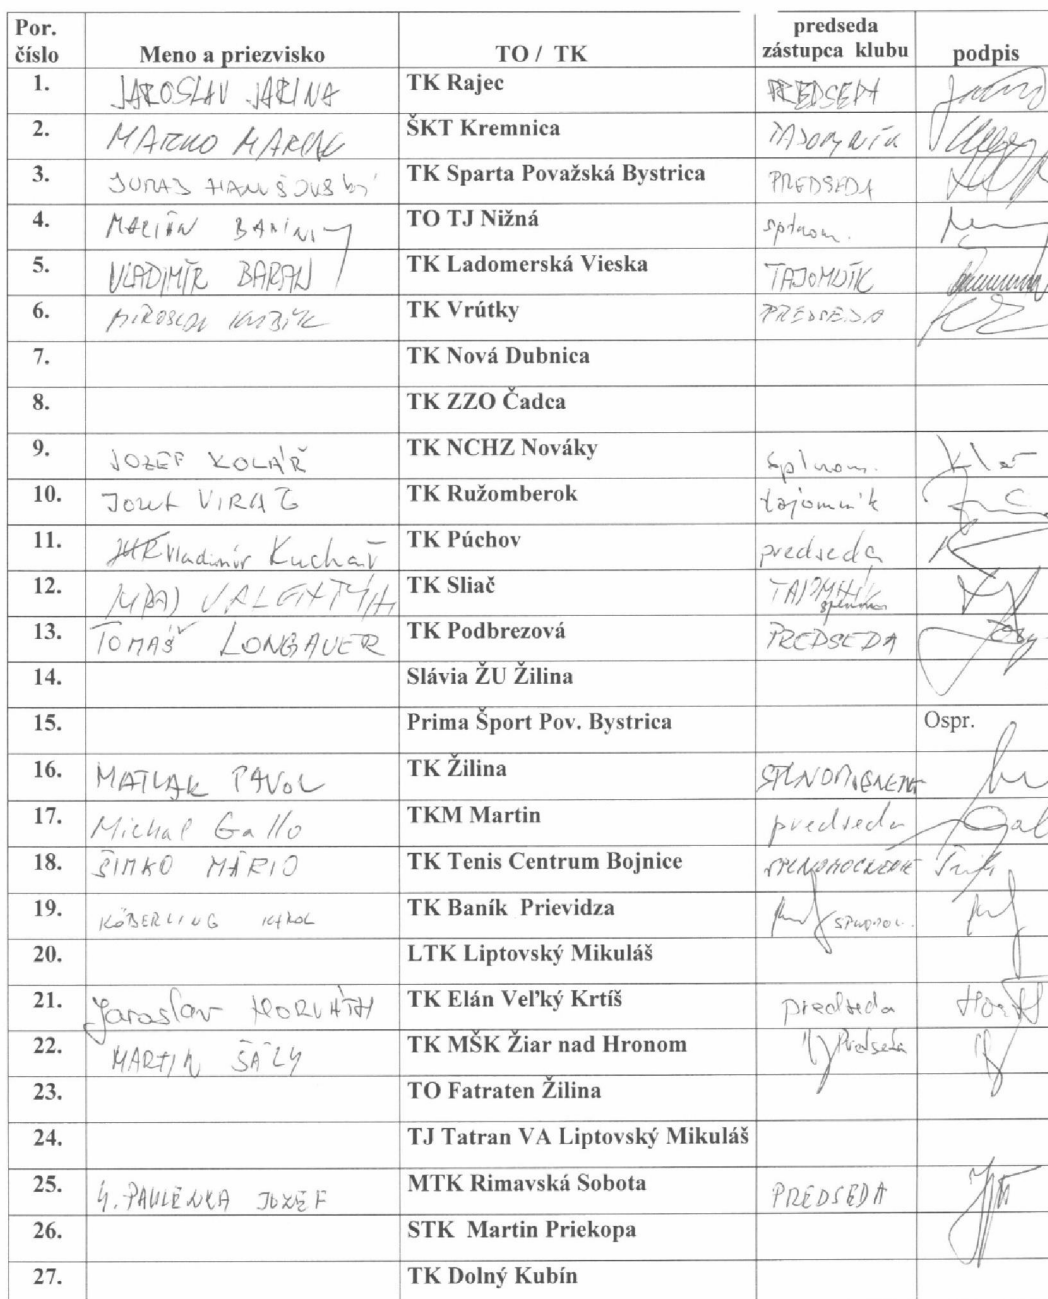 Por. číslo Meno a priezvisko TO / TK predseda zástupca klubu podpis
1. JAROSLAV JARINA TK Rajec PREDSEDA
2. MARKO ŠKT Kremnica
3. JURAJ HANUŠOVSKÝ TK Sparta Považská Bystrica PREDSEDA
4. MARIÁN TO TJ Nižná splnom.
5. VLADIMÍR BARAN TK Ladomerská Vieska TAJOMNÍK
6. MIROSLAV TK Vrútky PREDSEDA
7. TK Nová Dubnica
8. TK ZZO Čadca
9. JOZEF KOLÁŘ TK NCHZ Nováky splnom.
10. Jozef VIRÁG TK Ružomberok tajomník
11. Vladimír Kuchař TK Púchov predseda
12. JURAJ VALENTÝN TK Sliač TAJOMNÍK
13. TOMÁŠ LONGAUER TK Podbrezová PREDSEDA
14. Slávia ŽU Žilina
15. Prima Šport Pov. Bystrica Ospr.
16. MATLAK PAVOL TK Žilina
17. Michal Gallo TKM Martin predseda
18. ŠIMKO MÁRIO TK Tenis Centrum Bojnice
19. KÖBERLING KAROL TK Baník Prievidza
20. LTK Liptovský Mikuláš
21. Jaroslav HORVÁTH TK Elán Veľký Krtíš predseda
22. MARTIN ŠÁLY TK MŠK Žiar nad Hronom Predseda
23. TO Fatraten Žilina
24. TJ Tatran VA Liptovský Mikuláš
25. PAULENKA JOZEF MTK Rimavská Sobota PREDSEDA
26. STK Martin Priekopa
27. TK Dolný Kubín